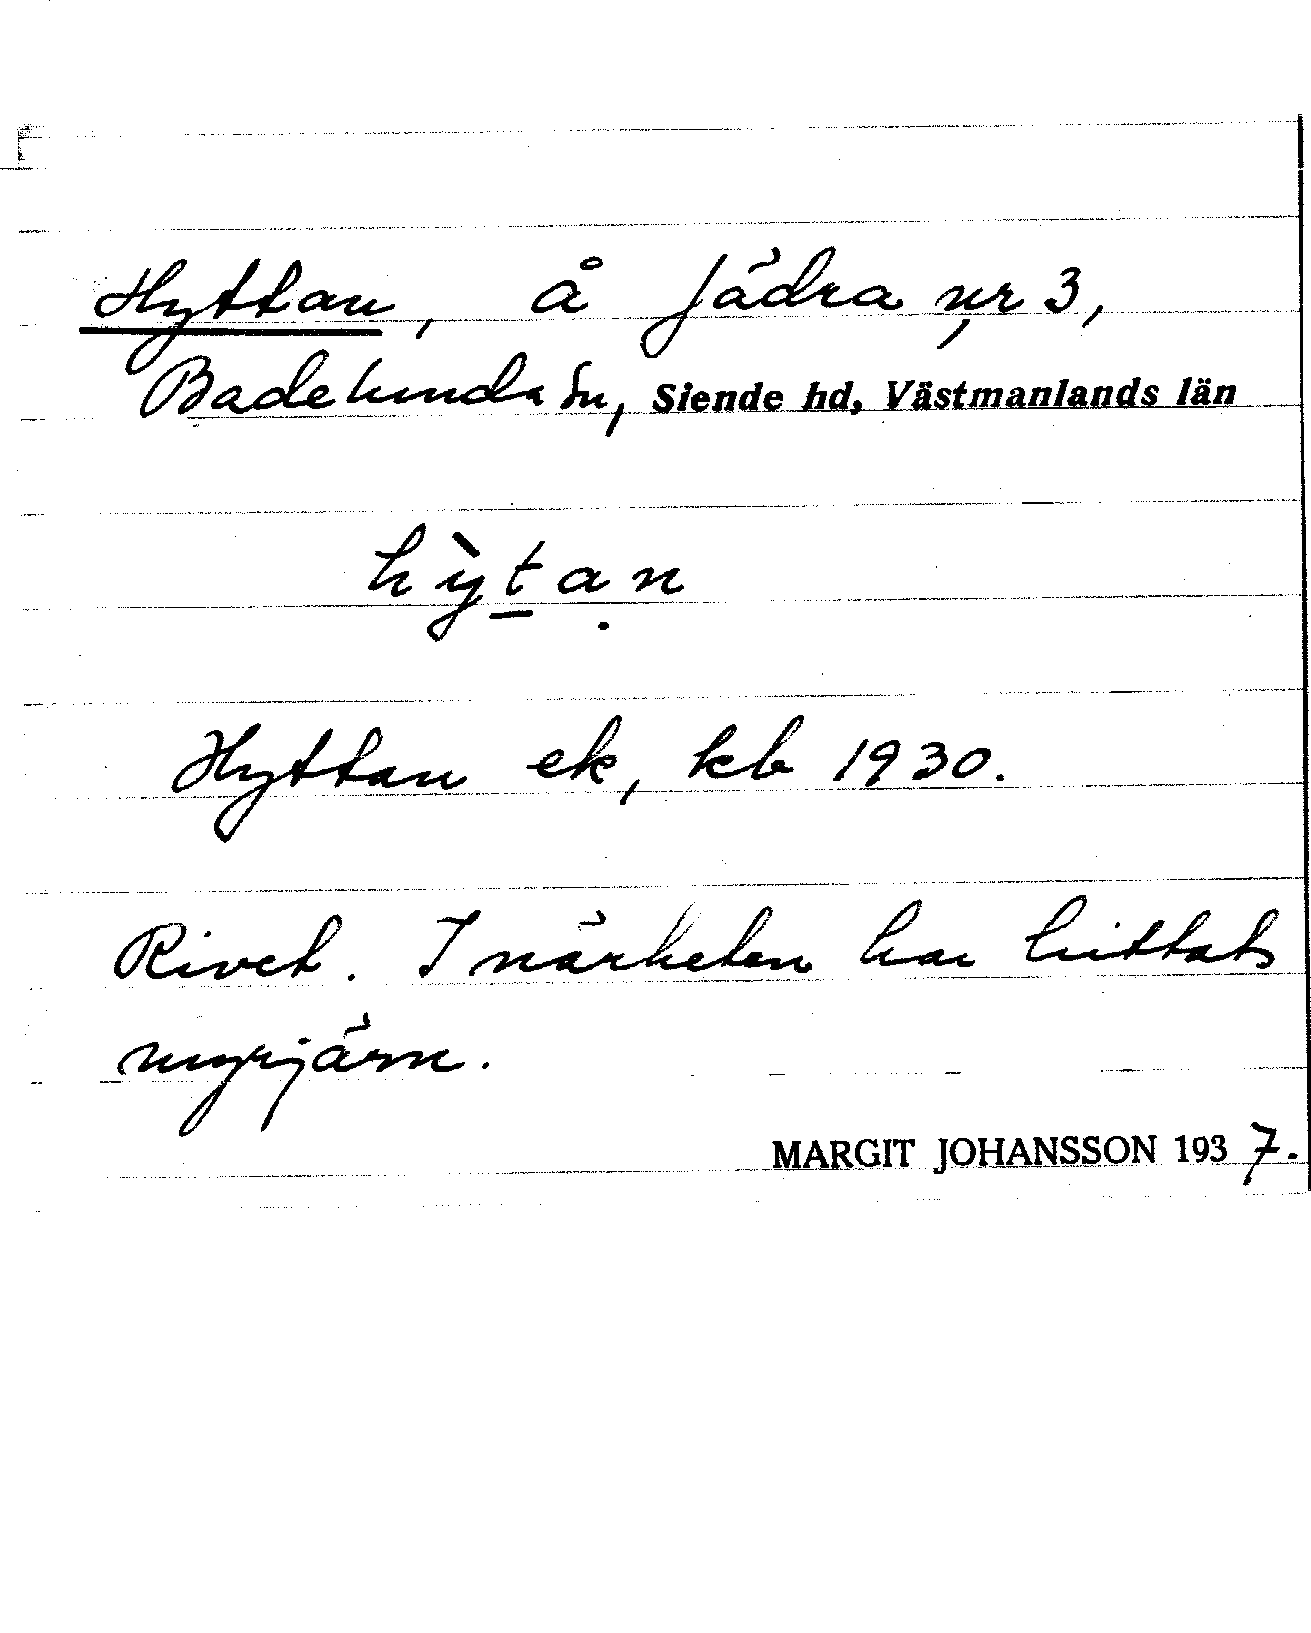 Hyttan, å Jädra nr 3,
Badelunda sn, Siende hd, Västmanlands län
hỳt̲ạn
Hyttan ek, kb 1930.
Rivet. I närheten har hittats
myrjärn.
MARGIT JOHANSSON 1937.